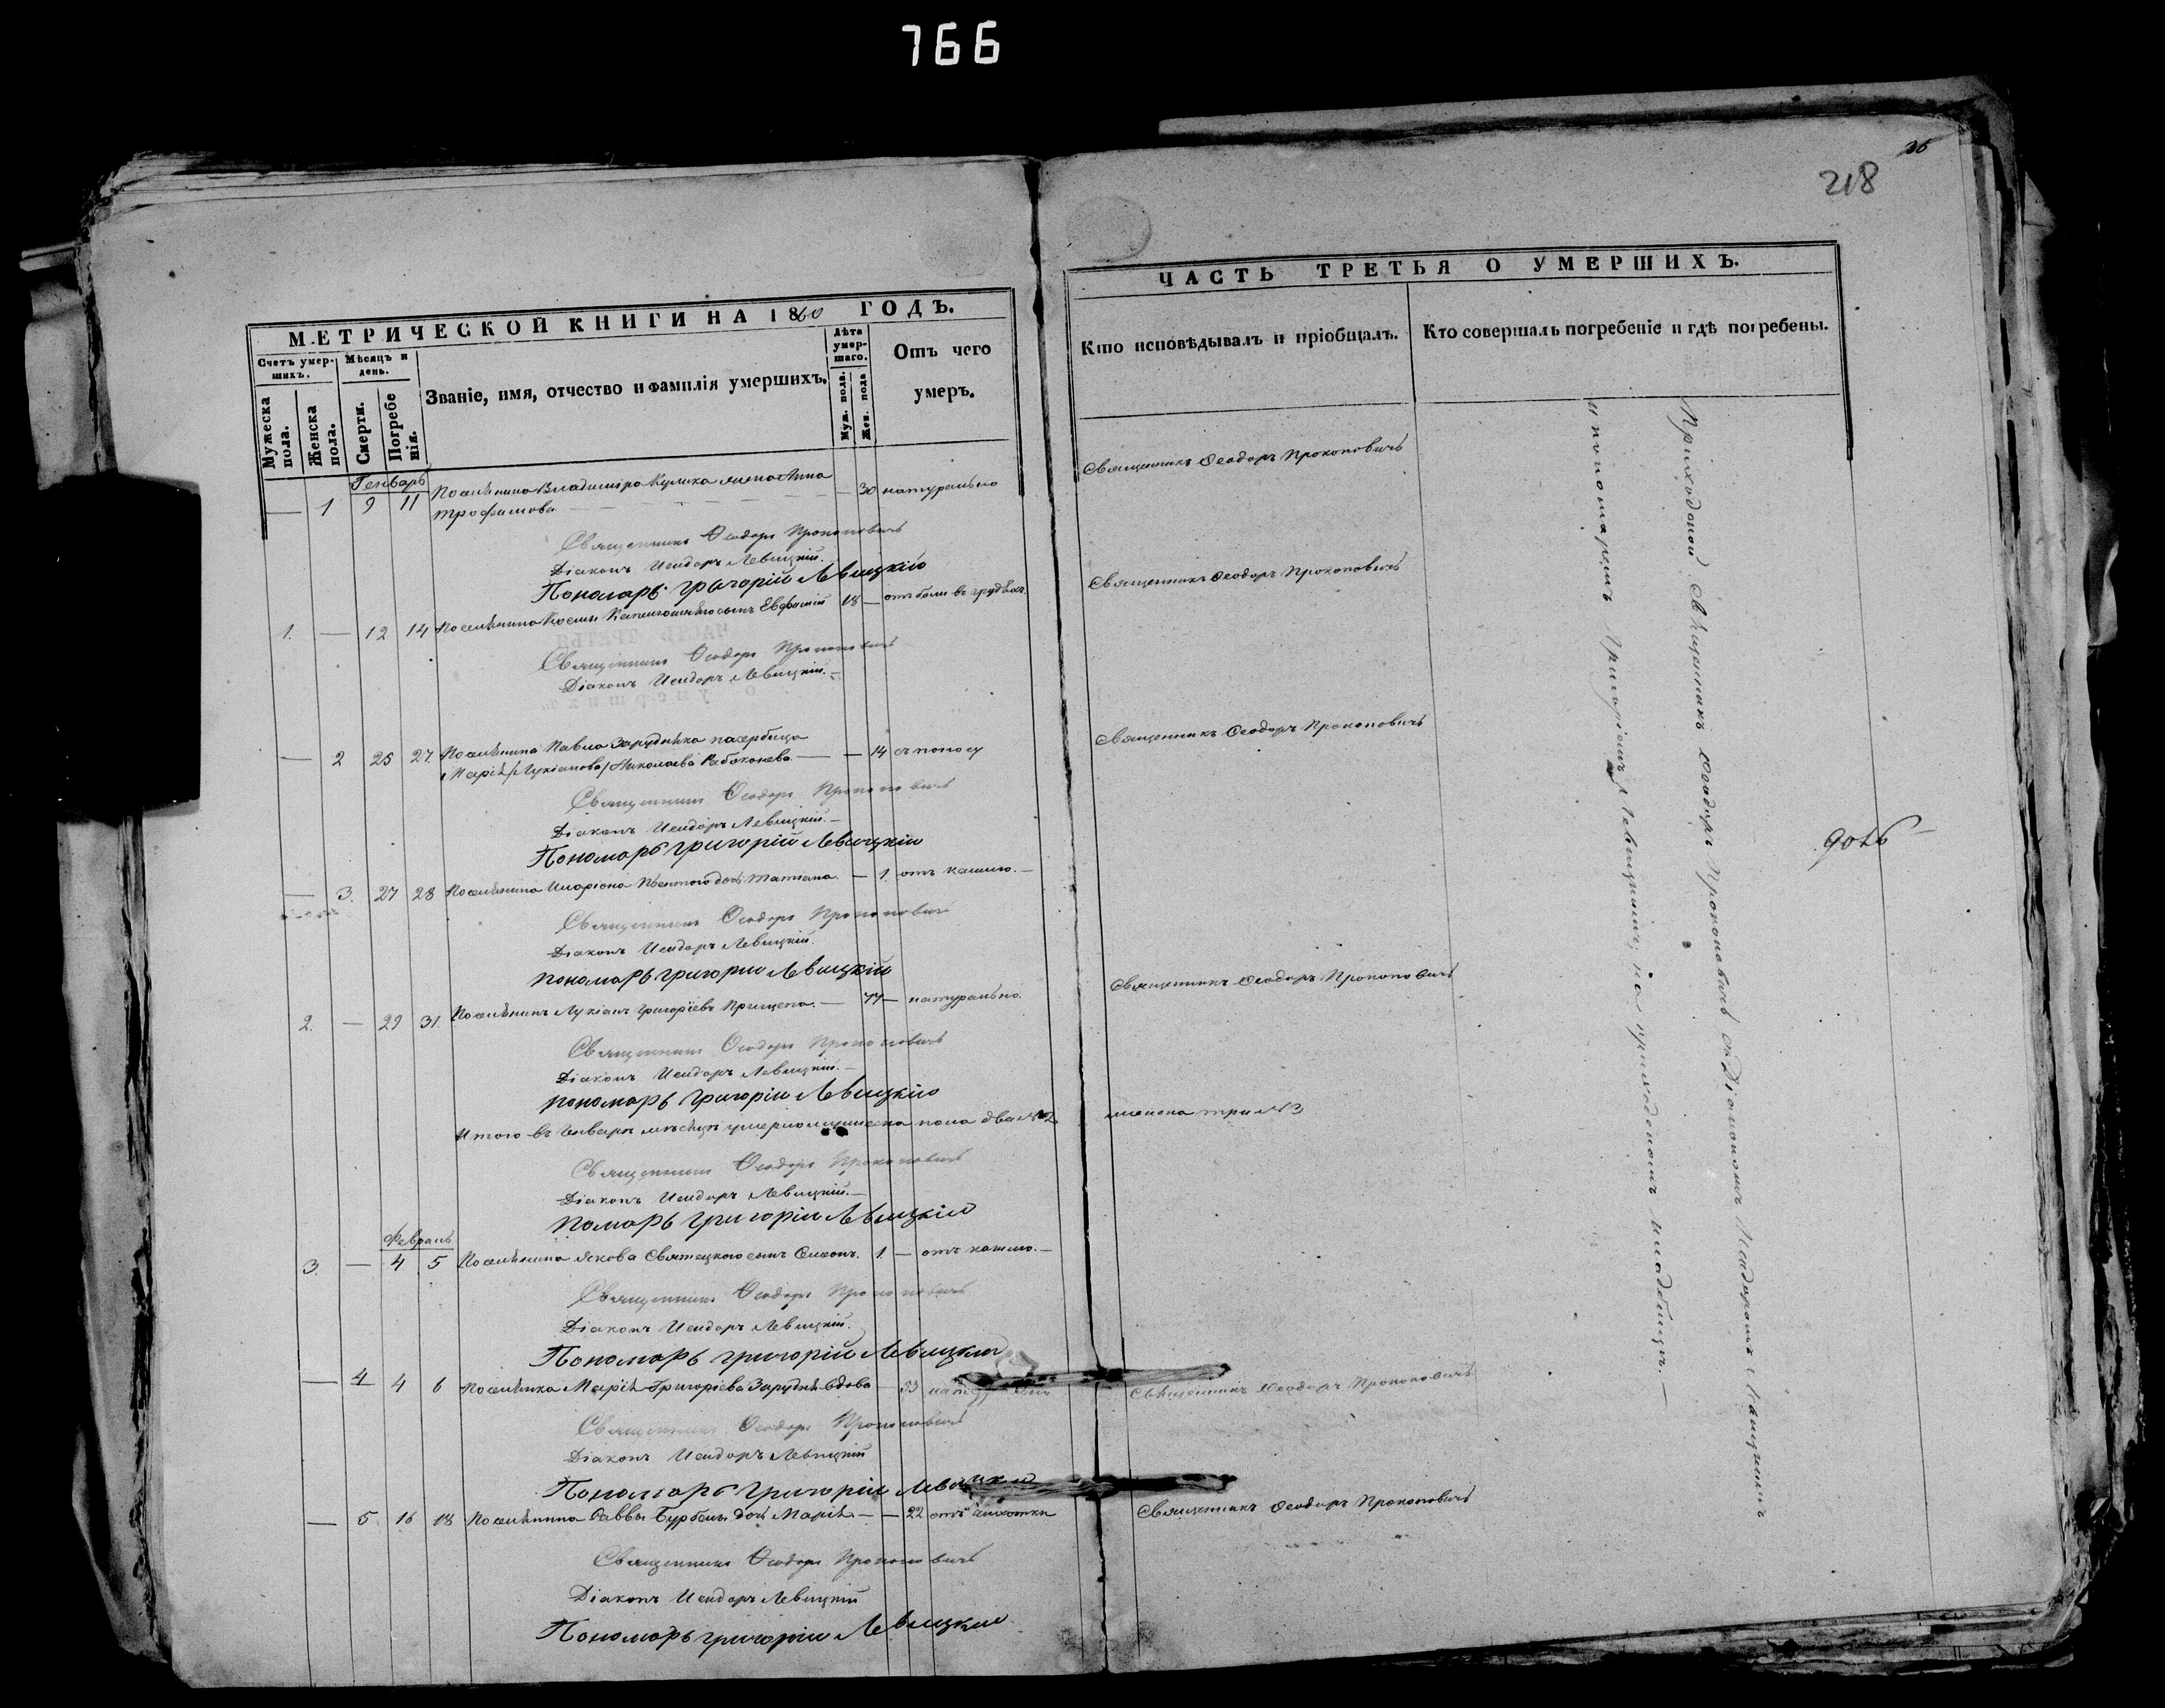 766
36
218
МЕТРИЧЕСКОЙ КНИГИ НА 1860 ГОДЪ.
Счетъ умершихъ.
Мужеска пола.
Женска пола.
Мѣсяцъ и день.
Смерти.
Погребенія.
Званіе, имя, отчество и фамилія умершихъ.
Лѣта умершаго.
Муж. пола.
Жен. пола
Отъ чего умеръ.
ЧАСТЬ ТРЕТЬЯ О УМЕРШИХЪ.
Кто исповѣдывалъ и пріобщалъ.
Кто совершалъ погребеніе и гдѣ погребены.
Генварь
— 1 9 11 Поселянина Владиміра Кулика жена Анна — 30 натурально
Трофимова
Священникъ Ѳеодоръ Прокоповичъ
Священникъ Ѳеодоръ Прокоповичъ
Діаконъ Исидоръ Левицкій.
Пономарь Григорій Левицкій
1. — 12 14 Поселянина сынъ Евфимій 18 — отъ боли въ грудяхъ.
Священникъ Ѳеодоръ Прокоповичъ
Священникъ Ѳеодоръ Прокоповичъ
Діаконъ Исидоръ Левицкій.—
— 2 25 27. Поселянина Павла Заруднѣка пасербица
Марія /Лукіанова/ Николаева — — 14 съ поносу
Священникъ Ѳеодоръ Прокоповичъ
Священникъ Ѳеодоръ Прокоповичъ
Діаконъ Исидоръ Левицкій.—
Пономарь Григорій Левицкій
— 3. 27 28 Поселянина Иларіона дочь Татіана. — 1 отъ кашлю.—
Священникъ Ѳеодоръ Прокоповичъ
Діаконъ Исидоръ Левицкій.
пономарь Григорій Левицкій
2. — 29 31. Поселянинъ Лукіанъ Григоріевъ Прищепа.— 77 — натурально.
Священникъ Ѳеодоръ Прокоповичъ
Священникъ Ѳеодоръ Прокоповичъ
Діаконъ Исидоръ Левицкій.—
пономарь Григорій Левицкій
Итого въ Генварѣ мѣсяцѣ умерло мужеска пола два №2 женска три №3
Священникъ Ѳеодоръ Прокоповичъ
Діаконъ Исидоръ Левицкій.—
помарь Григорій Левицкій
Февраль
3. — 4 5 Поселянина Якова Святецкого сынъ Симеонъ. 1 — отъ кашлю.—
Священникъ Ѳеодоръ Прокоповичъ
Діаконъ Исидоръ Левицкій.
Пономарь Григорій Левицкій
— 4 4 6 Поселянка Марія Григоріева вдова — 53
Священникъ Ѳеодоръ Прокоповичъ
Священникъ Ѳеодоръ Прокоповичъ
Діаконъ Исидоръ Левицкій
Пономарь Григорій Левицкій
— 5 16 18 Поселянина Саввы дочь Марія — — 22 отъ чихотки
Священникъ Ѳеодоръ Прокоповичъ
Священникъ Ѳеодоръ Прокоповичъ
Діаконъ Исидоръ Левицкій
Пономарь Григорій Левицкій
Приходской Священникъ Ѳеодоръ Прокоповичъ съ Діакономъ Исидоромъ Левицкимъ
и пономаремъ Григоріемъ Левицкимъ, на приходскомъ кладбищѣ.—